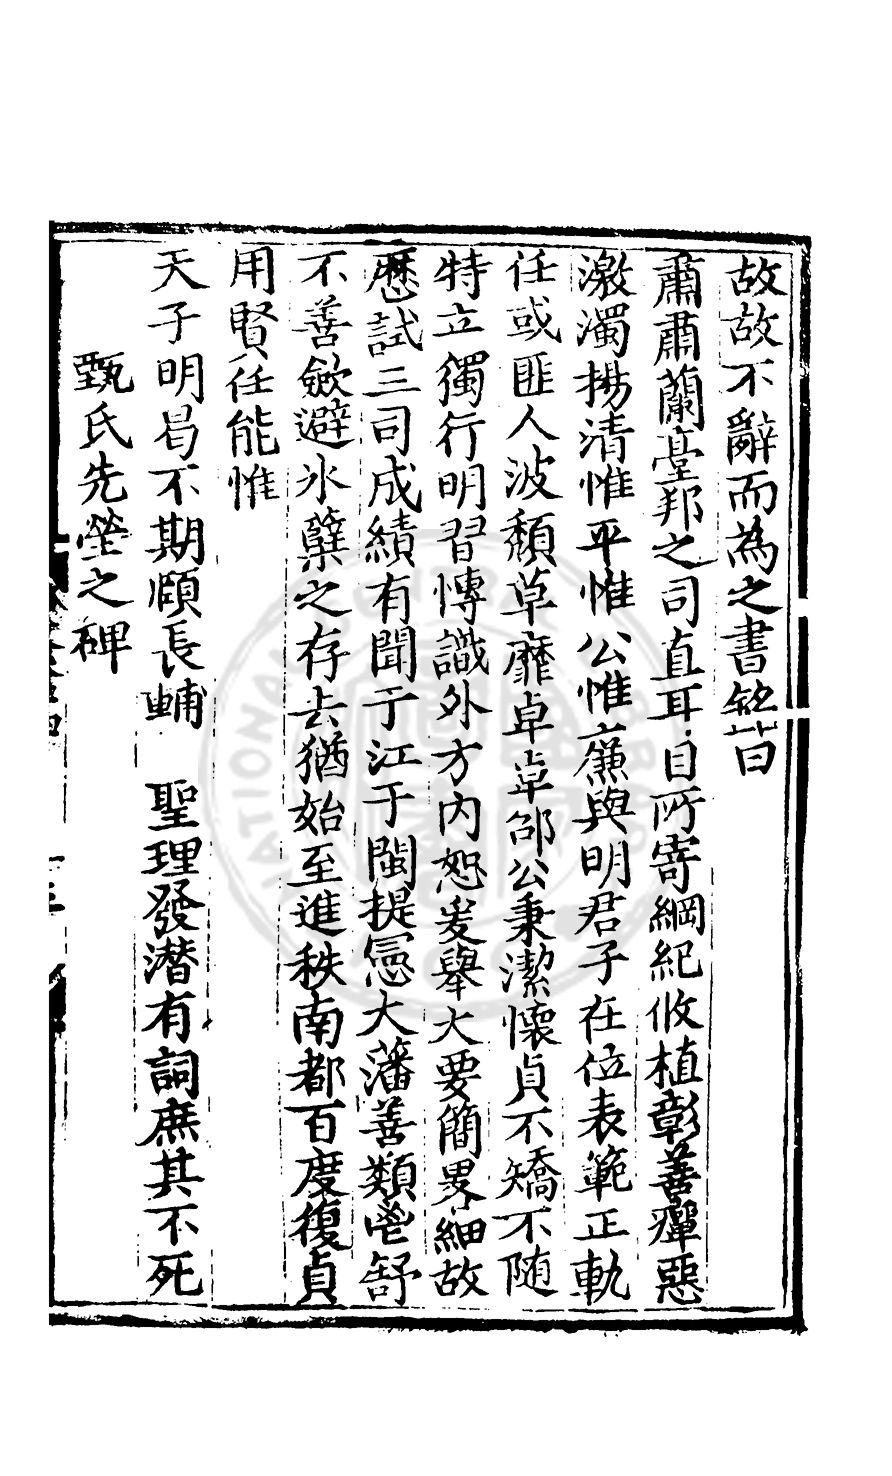 故故不辭而為之書銘皆曰
肅肅蘭臺邦之司直耳目所寄綱紀攸植彰善癉惡
激濁揚清惟平惟公惟廉與明君子在位表範正軌
任或匪人波頹草靡卓卓邵公秉潔懷貞不矯不隨
特立獨行明習慱識外方內恕爰舉大要簡畧細故
歷試三司成績有聞于江于閩提憲大藩善類鬯舒
不善歛避氷蘖之存去猶始至進秩南都百度復貞
用賢任能惟
天子明曷不期頤長輔 聖理發潛有詞庶其不死
甄氏先塋之碑